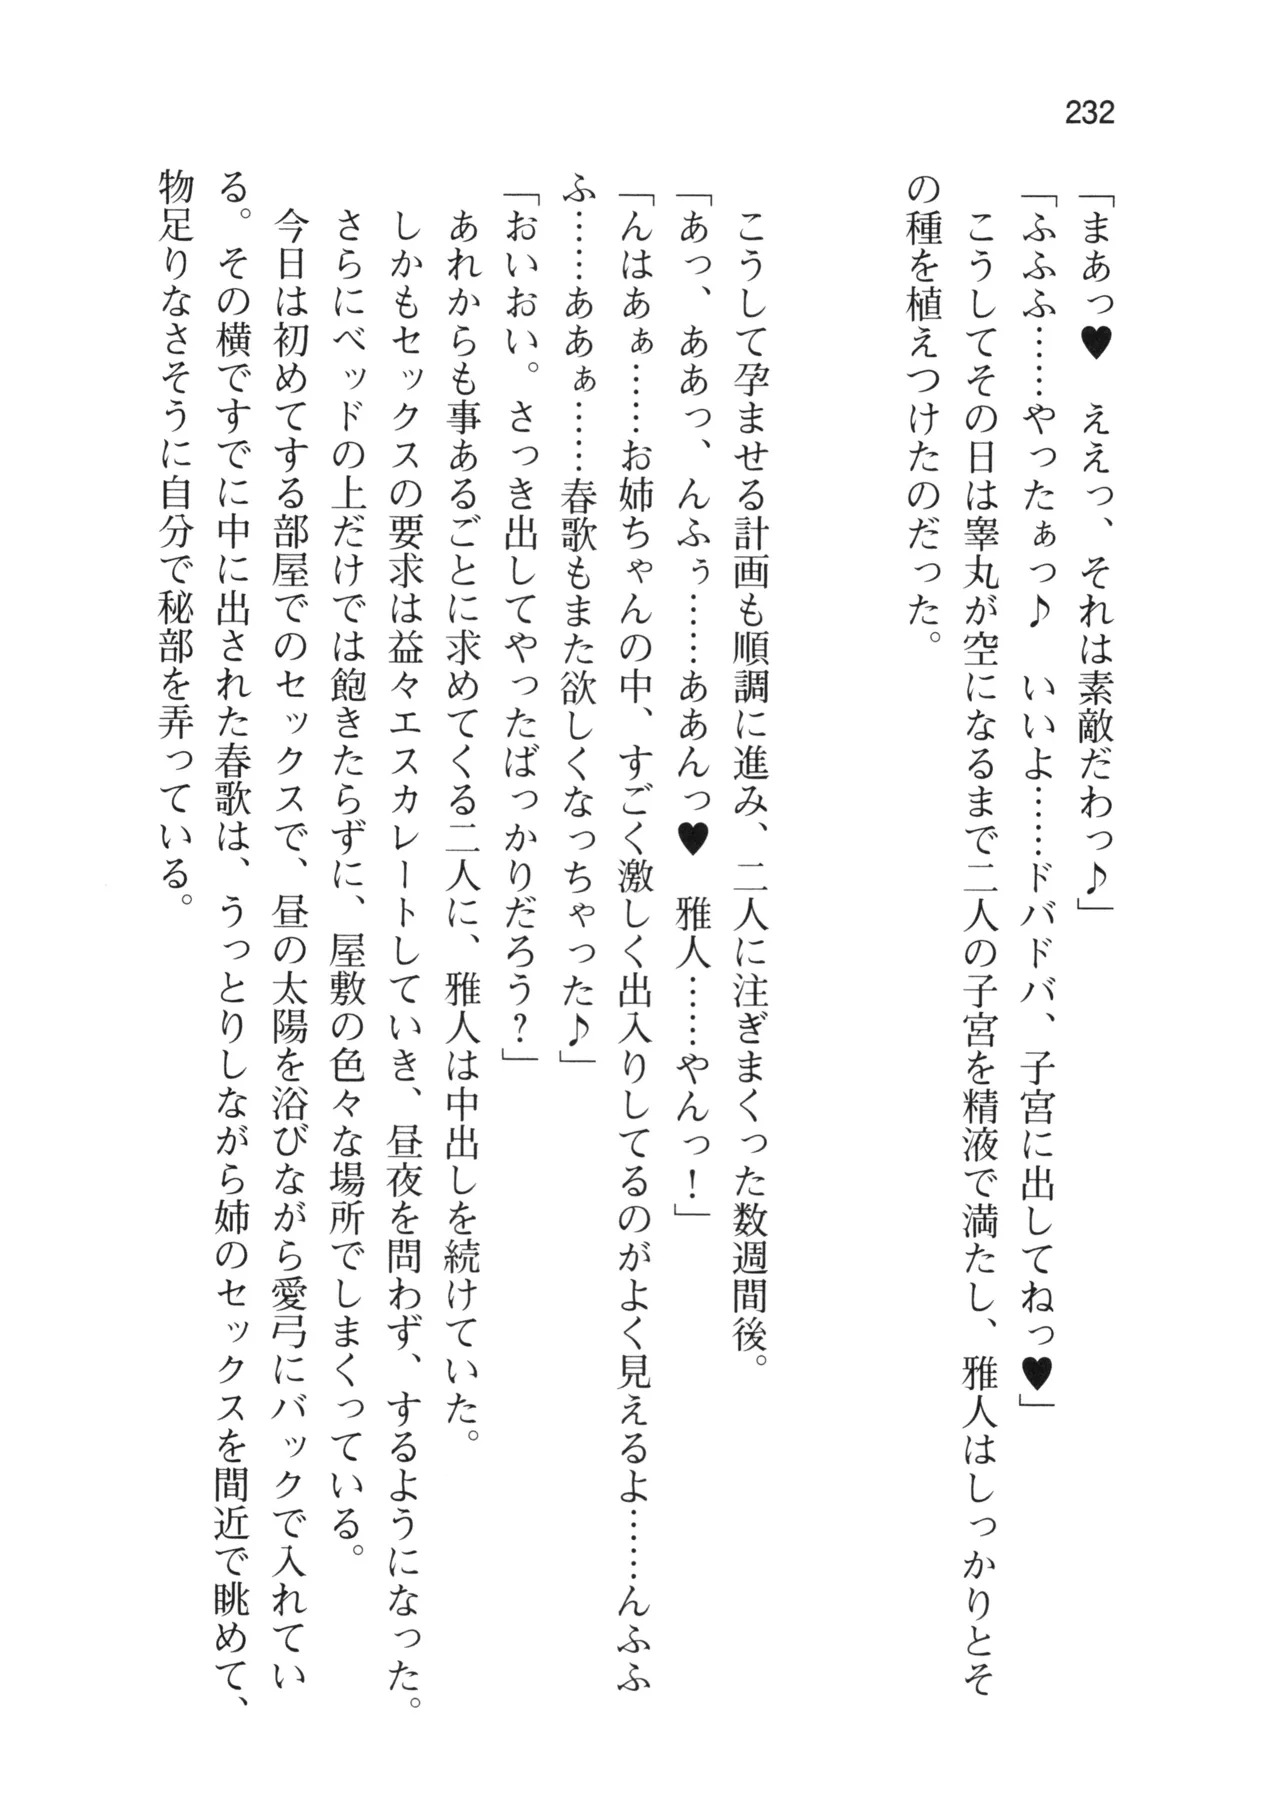 232
「まあっ♥　ええっ、それは素敵だわっ♪」
「ふふふ……やったぁっ♪　いいよ……ドバドバ、子宮に出してねっ♥」
　こうしてその日は睾丸が空になるまで二人の子宮を精液で満たし、雅人はしっかりとそ
の種を植えつけたのだった。
　こうして孕ませる計画も順調に進み、二人に注ぎまくった数週間後。
「あっ、ああっ、んふぅ……ああんっ♥　雅人……やんっ！」
「んはあぁ……お姉ちゃんの中、すごく激しく出入りしてるのがよく見えるよ……んふふ
ふ……ああぁ……春歌もまた欲しくなっちゃった♪」
「おいおい。さっき出してやったばっかりだろう？」
　あれからも事あるごとに求めてくる二人に、雅人は中出しを続けていた。
　しかもセックスの要求は益々エスカレートしていき、昼夜を問わず、するようになった。
　さらにベッドの上だけでは飽きたらずに、屋敷の色々な場所でしまくっている。
　今日は初めてする部屋でのセックスで、昼の太陽を浴びながら愛弓にバックで入れてい
る。その横ですでに中に出された春歌は、うっとりしながら姉のセックスを間近で眺めて、
物足りなさそうに自分で秘部を弄っている。